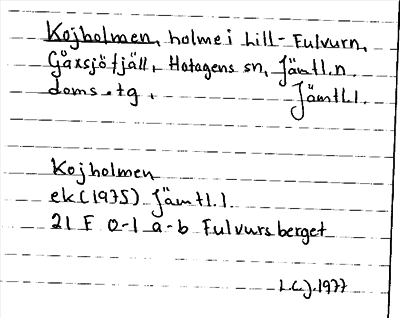 Kojholmen, holme i Lill-Fulvurn,
Gåxsjöfjäll, Hotagens sn, Jämtl.n.
doms.tg. Jämtl.l.
Kojholmen
ek (1975) Jämtl.l.
21 F 0-1 a-b Fulvursberget
1977